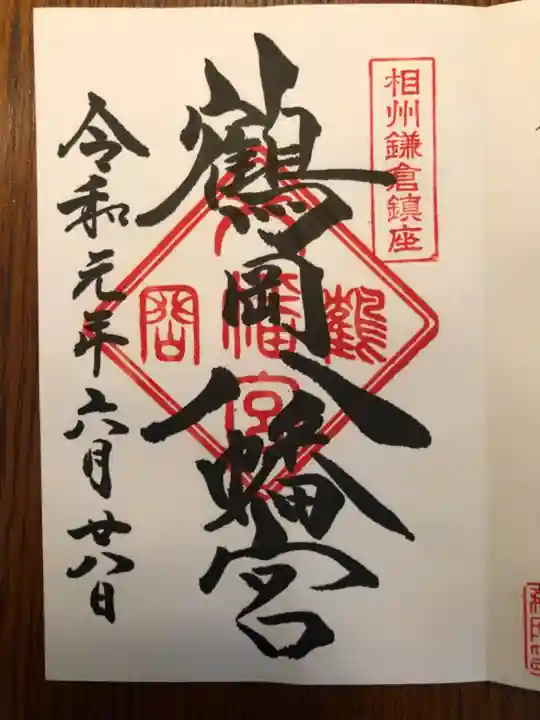 相州鎌倉鎮座
鶴岡八幡宮
鶴岡八幡宮
令和元年六月廿八日